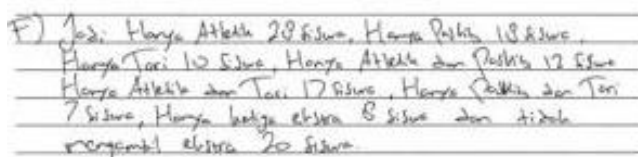 F) Jadi Hanya Atletik 28 siswa, Hanya Paskib 18 siswa,
Hanya Tari 10 siswa, Hanya Atletik dan Paskib 12 siswa
Hanya Atletik dan Tari 17 siswa, Hanya Paskib dan Tari
7 siswa, Hanya ketiga ekstra 8 siswa dan tidak
mengambil ekstra 20 siswa.